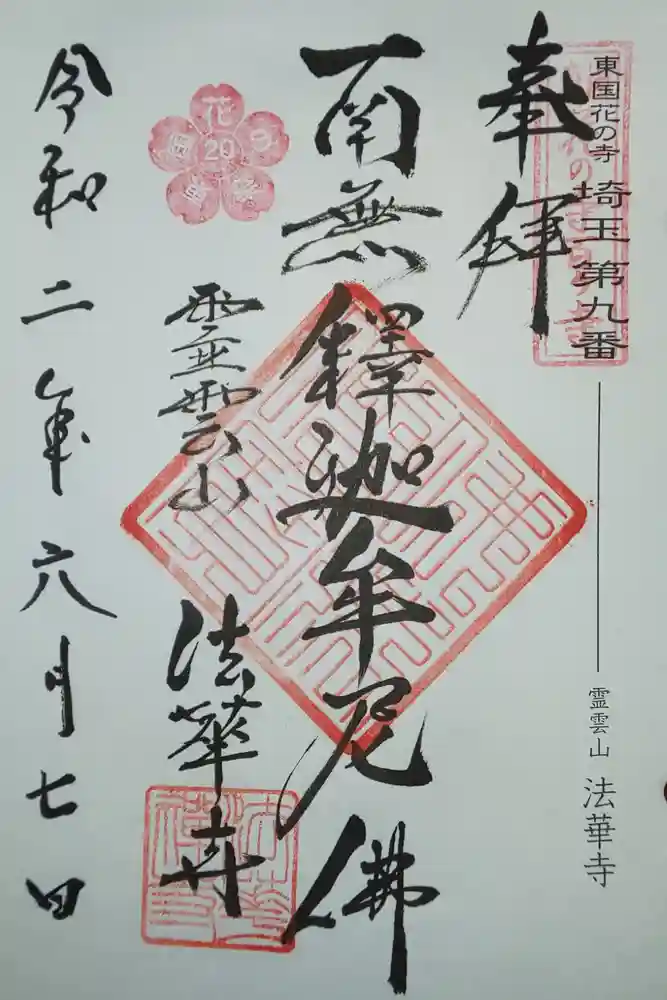 東国花の寺 埼玉第九番
霊雲山 法華寺
奉拝
南無釋迦牟尼佛
霊雲山
法華寺
令和二年六月七日
花
20